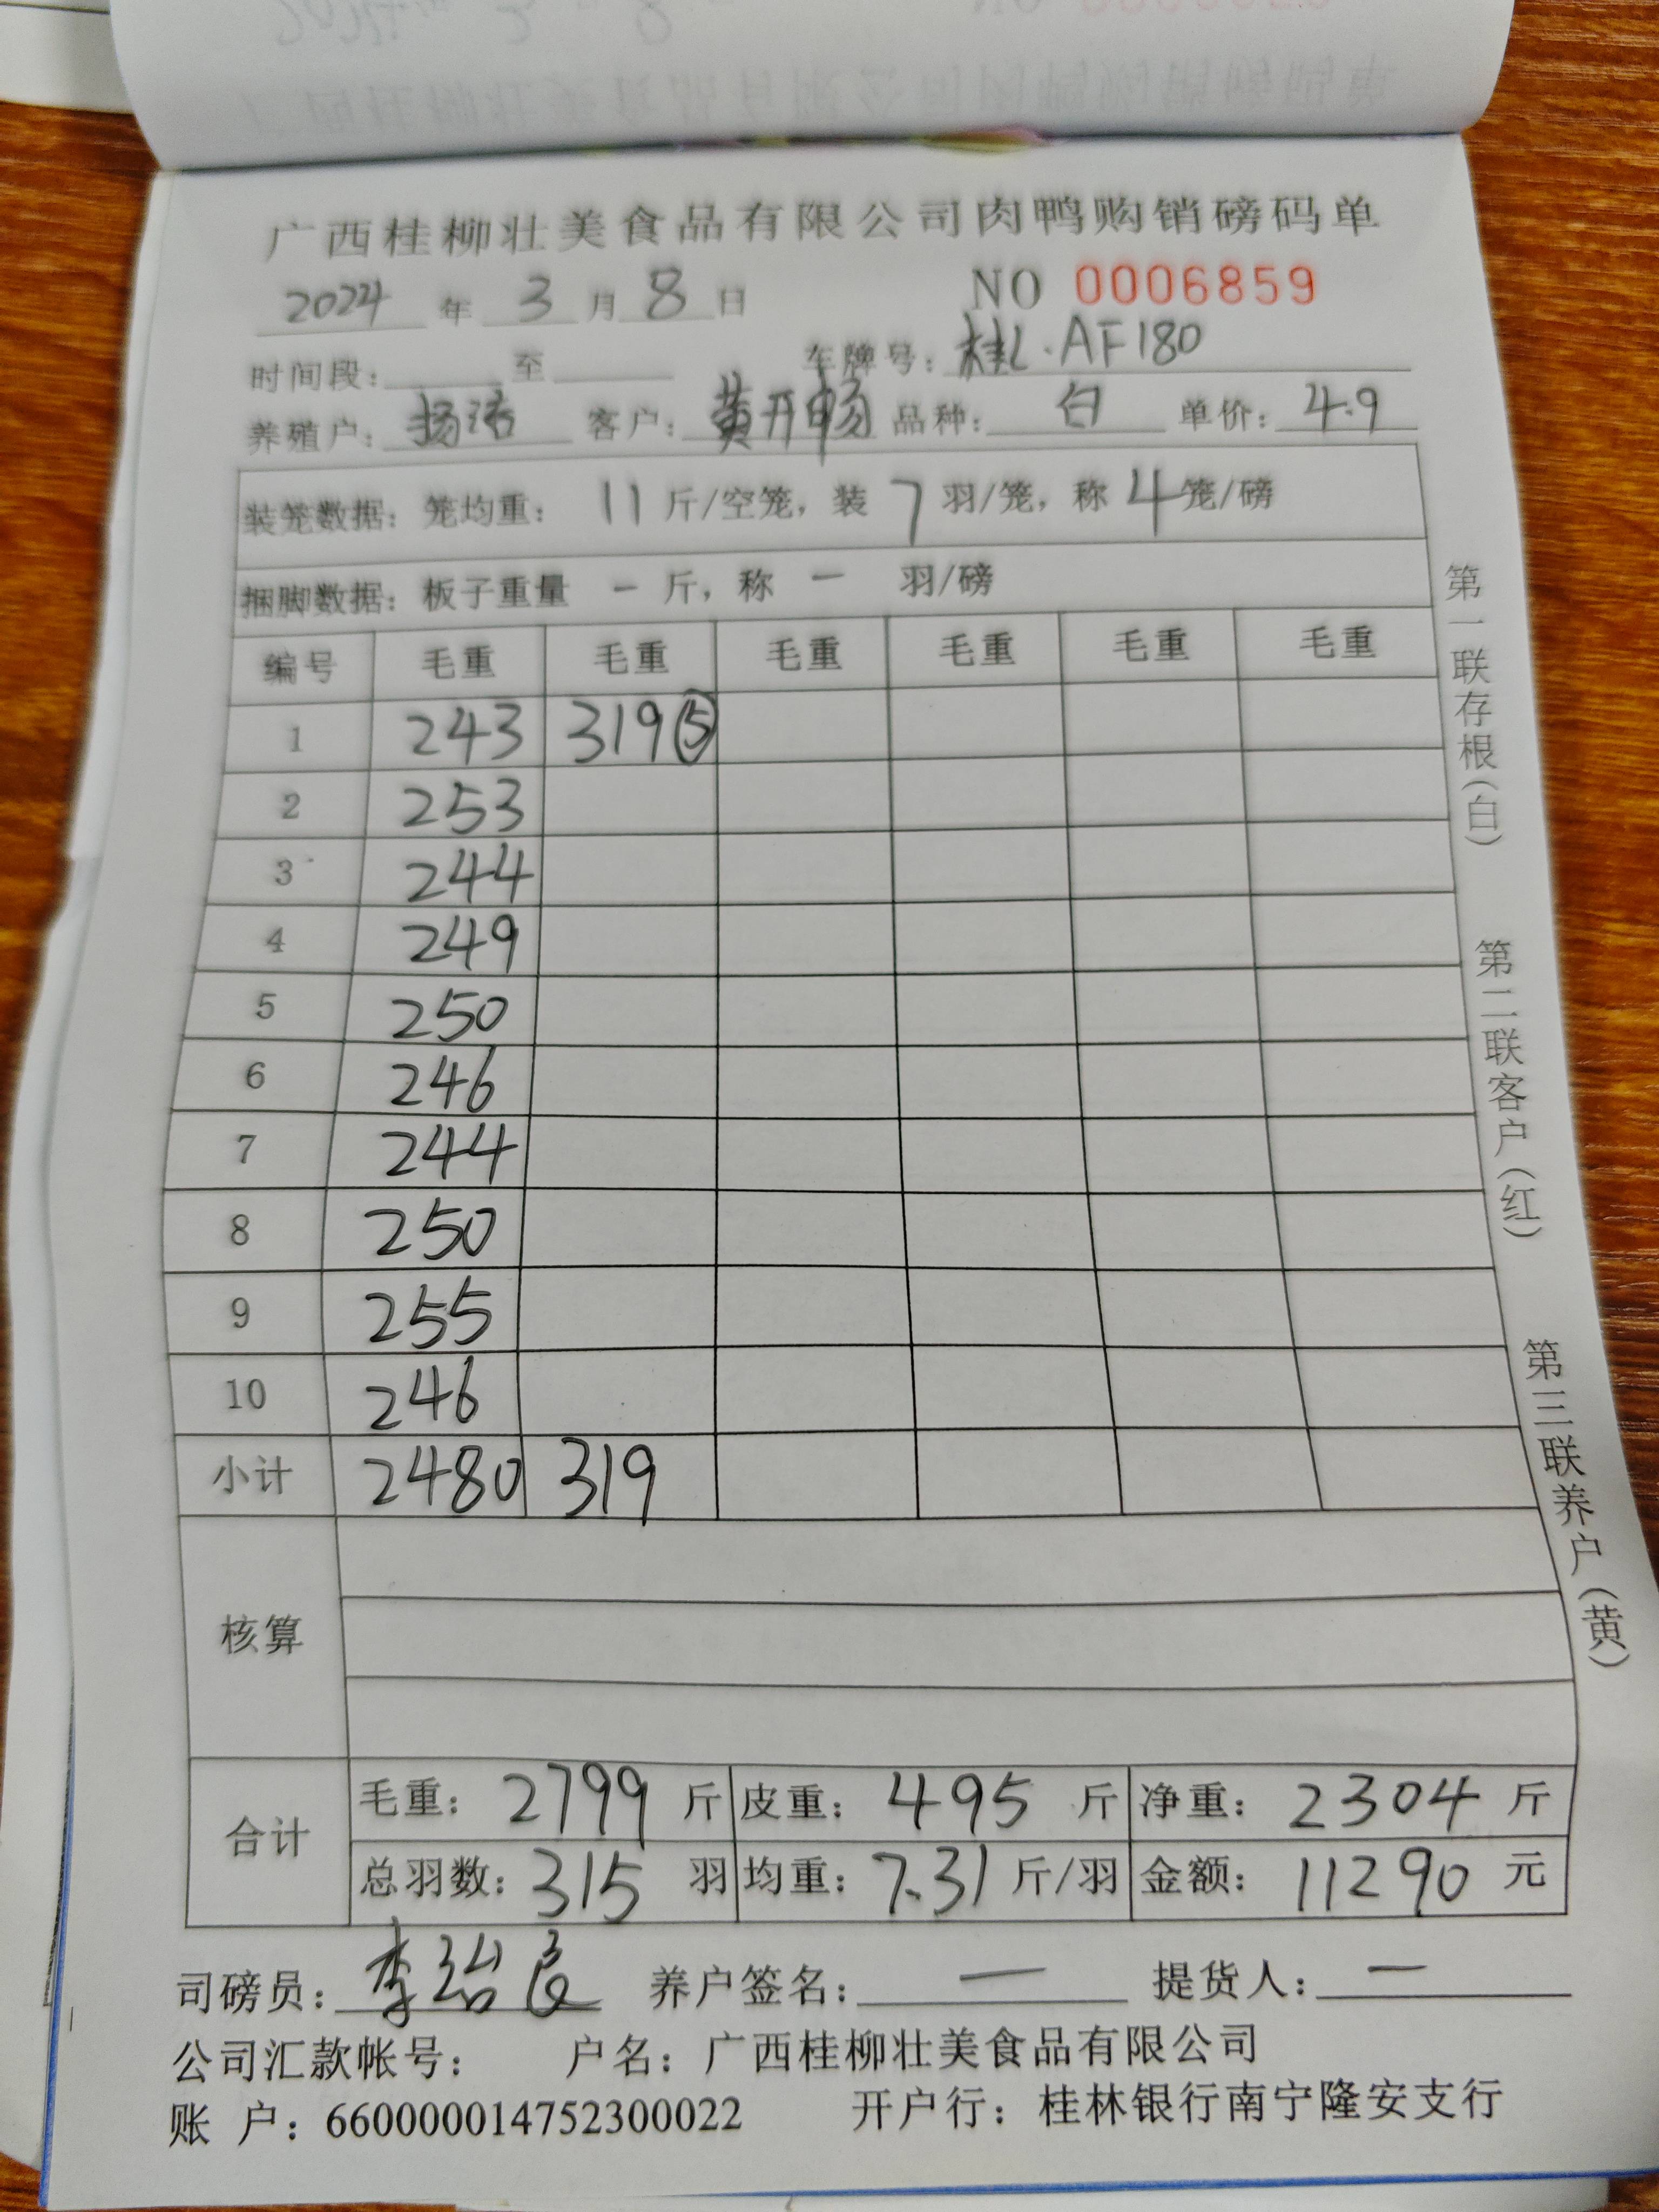 广西桂柳壮美食品有限公司肉鸭购销磅码单
2024 年 3 月 8 日 NO 0006859
时间段: 至 车牌号: 桂L·AF180
养殖户: 杨浩 客户: 黄开畅 品种: 白 单价: 4.9
装笼数据: 笼均重: 11 斤/空笼, 装 7 羽/笼, 称 4 笼/磅
捆脚数据: 板子重量 一 斤, 称 一 羽/磅
编号 毛重 毛重 毛重 毛重 毛重 毛重
1 243 319⑤
2 253
3 244
4 249
5 250
6 246
7 244
8 250
9 255
10 246
小计 2480 319
核算
合计 毛重: 2799 斤 皮重: 495 斤 净重: 2304 斤
总羽数: 315 羽 均重: 7.31 斤/羽 金额: 11290 元
司磅员: 李绍良 养户签名: 一 提货人: 一
公司汇款帐号: 户名: 广西桂柳壮美食品有限公司
账 户: 660000014752300022 开户行: 桂林银行南宁隆安支行
第一联存根(白)
第二联客户(红)
第三联养户(黄)